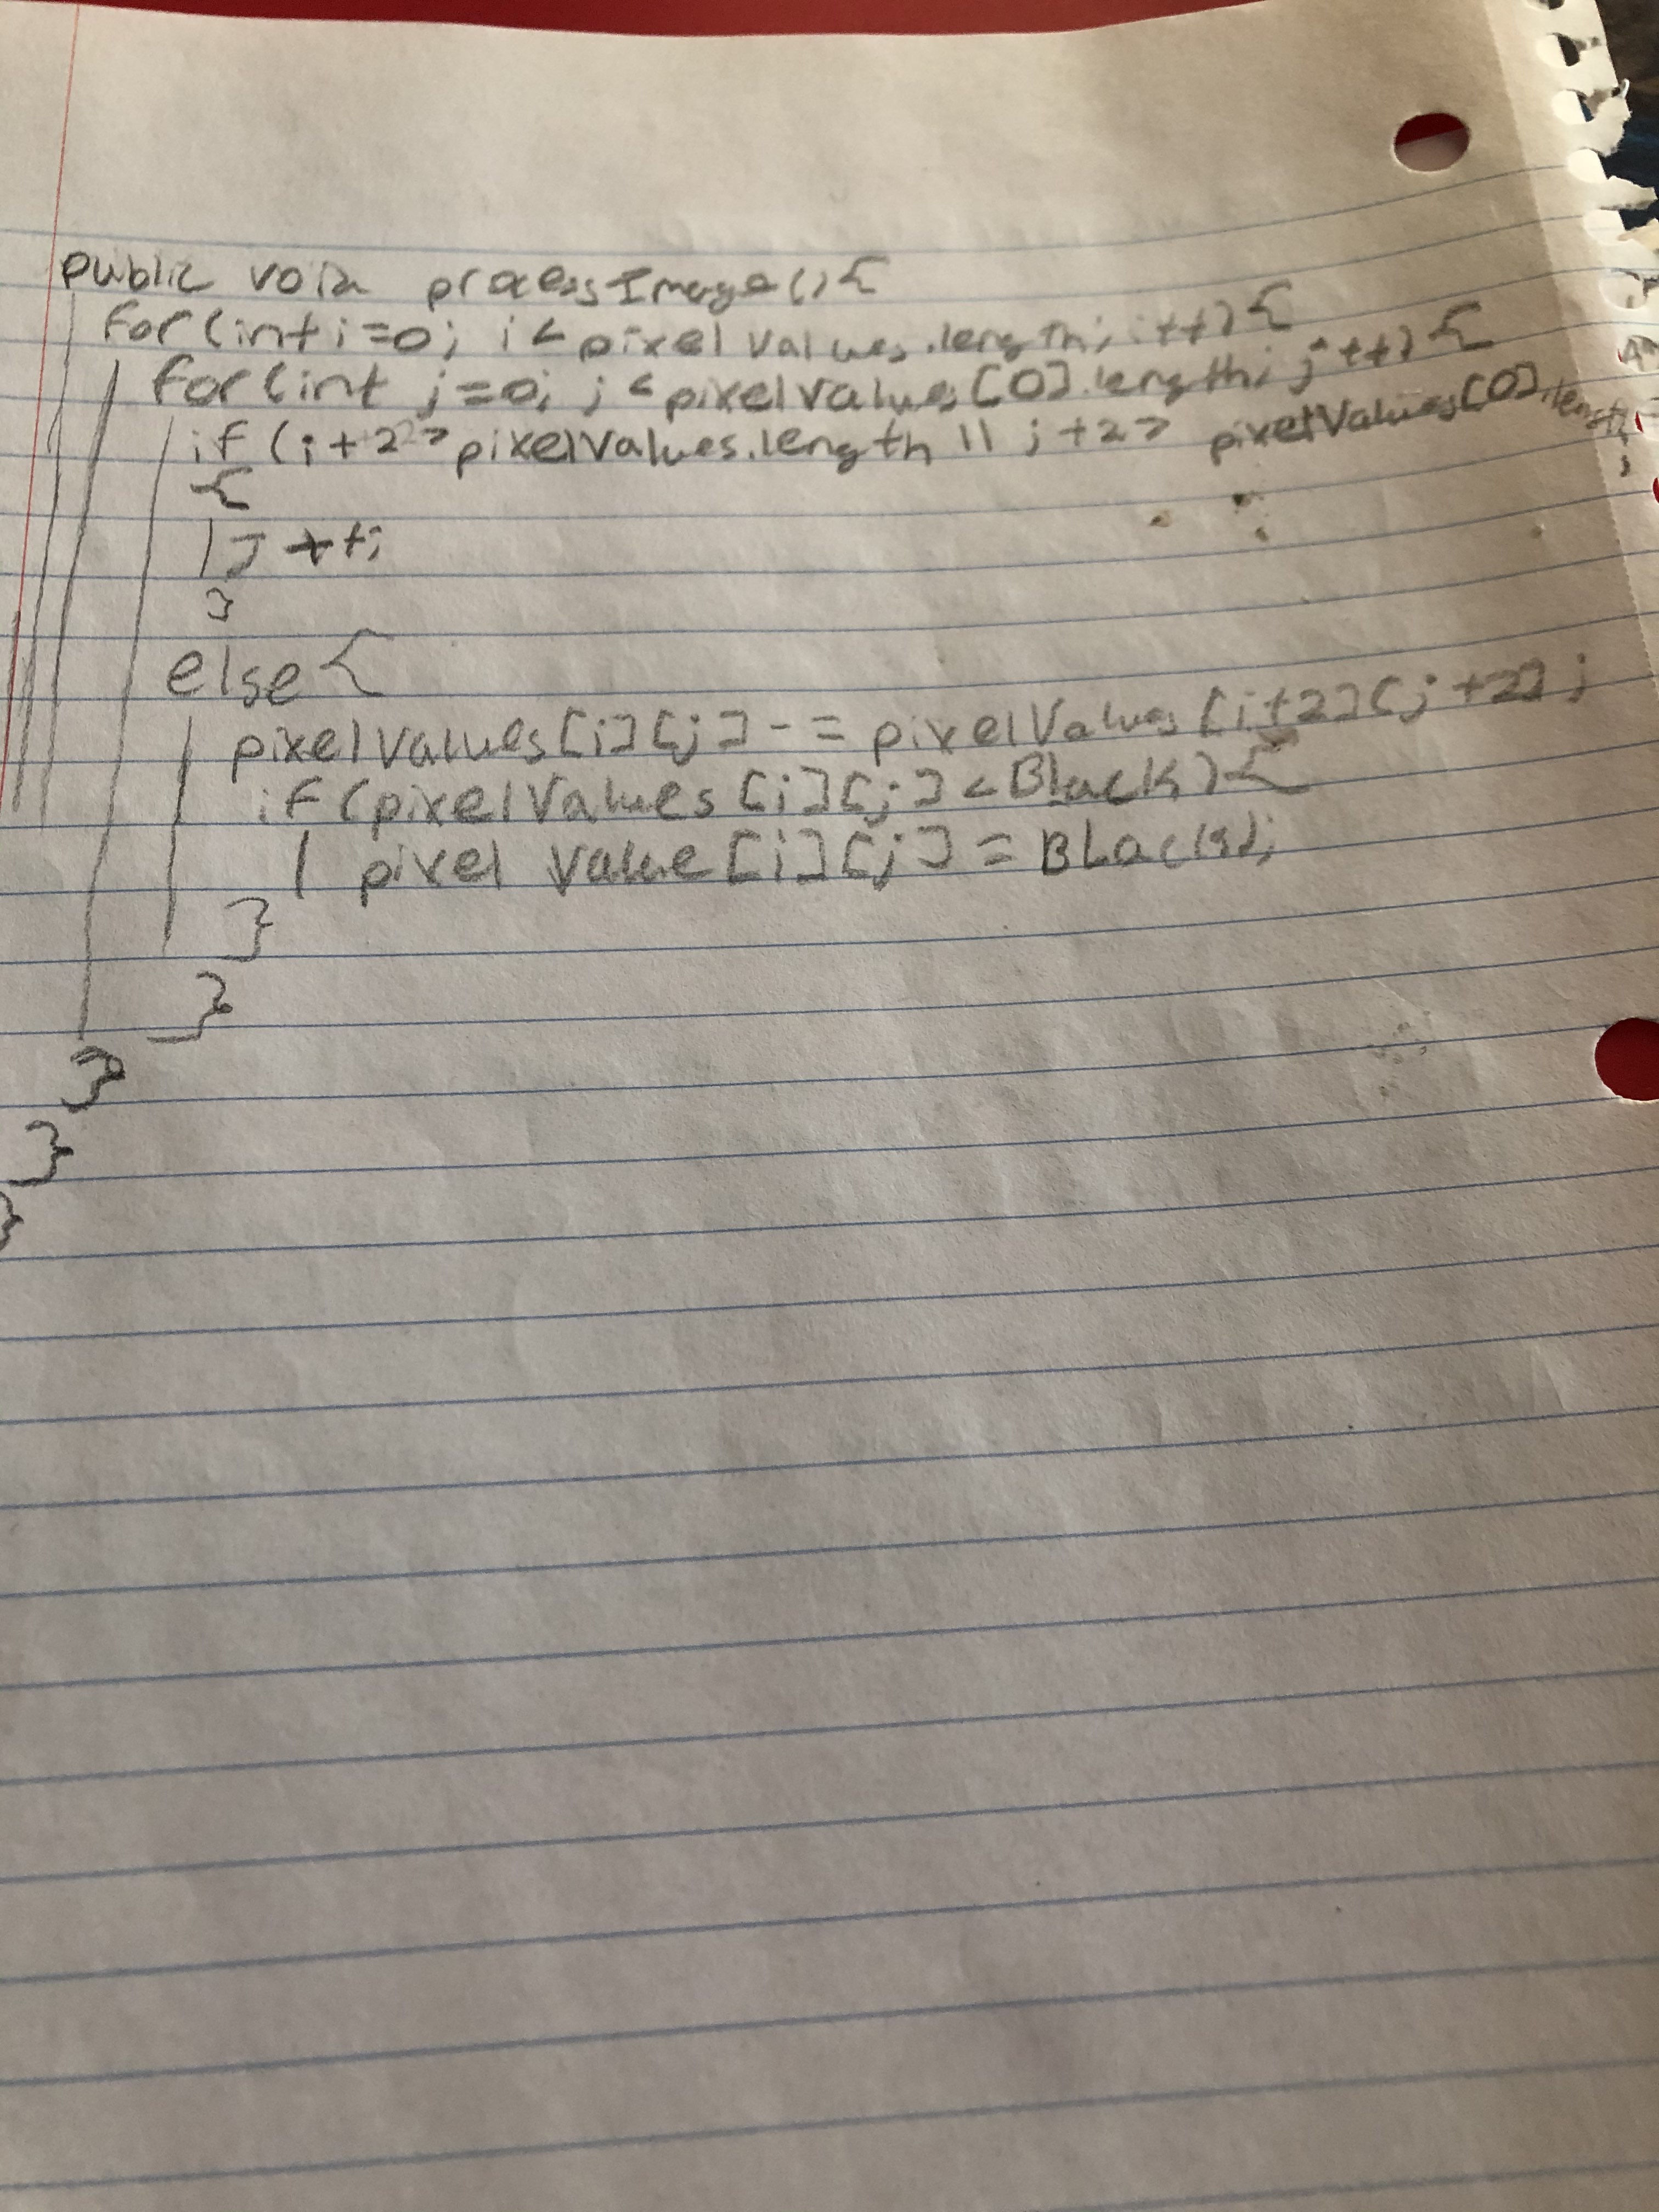 public void processImage(){
for(int i=0; i < pixelValues.length; i++){
for(int j=0; j < pixelValues[0].length; j++){
if (i+2 > pixelValues.length || j+2 > pixelValues[0].length;
{
j++;
}
else{
pixelValues[i][j] -= pixelValues[i+2][j+2];
if(pixelValues[i][j] < Black){
pixel Value[i][j] = BLack;
}
}
}
}
}